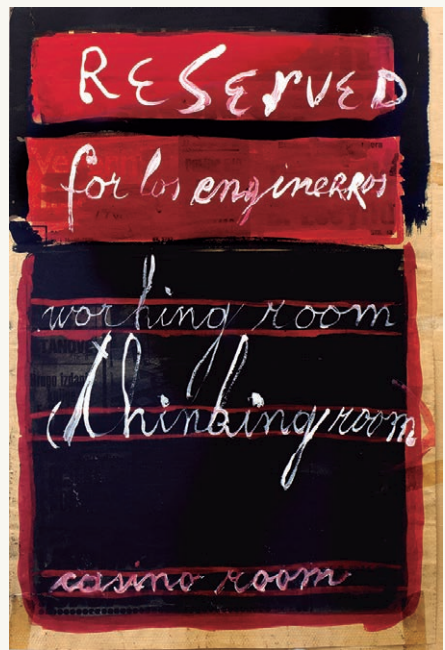 RESERVED
for los enginerros
working room
thinking room
casino room